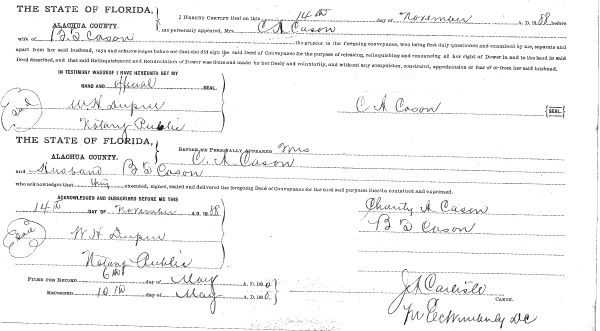 THE STATE OF FLORIDA,
ALACHUA COUNTY.
I HEREBY CERTIFY that on this 14th day of November A. D. 1888, before
me personally appeared, Mrs. C A Cason
wife of B S Cason the grantor in the foregoing conveyance, who being first duly questioned and examined by me, separate and
apart from her said husband, says and acknowledges before me that she did sign the said Deed of Conveyance for the purpose of releasing, relinquishing and renouncing all her right of Dower in and to the land in said
Deed described, and that said Relinquishment and Renunciation of Dower was done and made by her freely and voluntarily, and without any compulsion, constraint, apprehension or fear of or from her said husband.
IN TESTIMONY WHEREOF I HAVE HEREUNTO SET MY
HAND AND official SEAL.
Seal
W. H. Dupree
Notary Public
C A Cason {SEAL}
THE STATE OF FLORIDA,
ALACHUA COUNTY.
BEFORE ME PERSONALLY APPEARED Mrs
C. A. Cason
and Husband B S Cason
who acknowledges that they executed, signed, sealed and delivered the foregoing Deed of Conveyance for the uses and purposes therein contained and expressed.
ACKNOWLEDGED AND SUBSCRIBED BEFORE ME THIS
14th DAY OF November A.D. 1888
Seal
W H Dupree
Notary Public
Charity A Cason
B S Cason
FILED FOR RECORD 6th day of May A. D. 18
RECORDED 10th day of May A. D. 18
J A Carlisle
CLERK.
DC